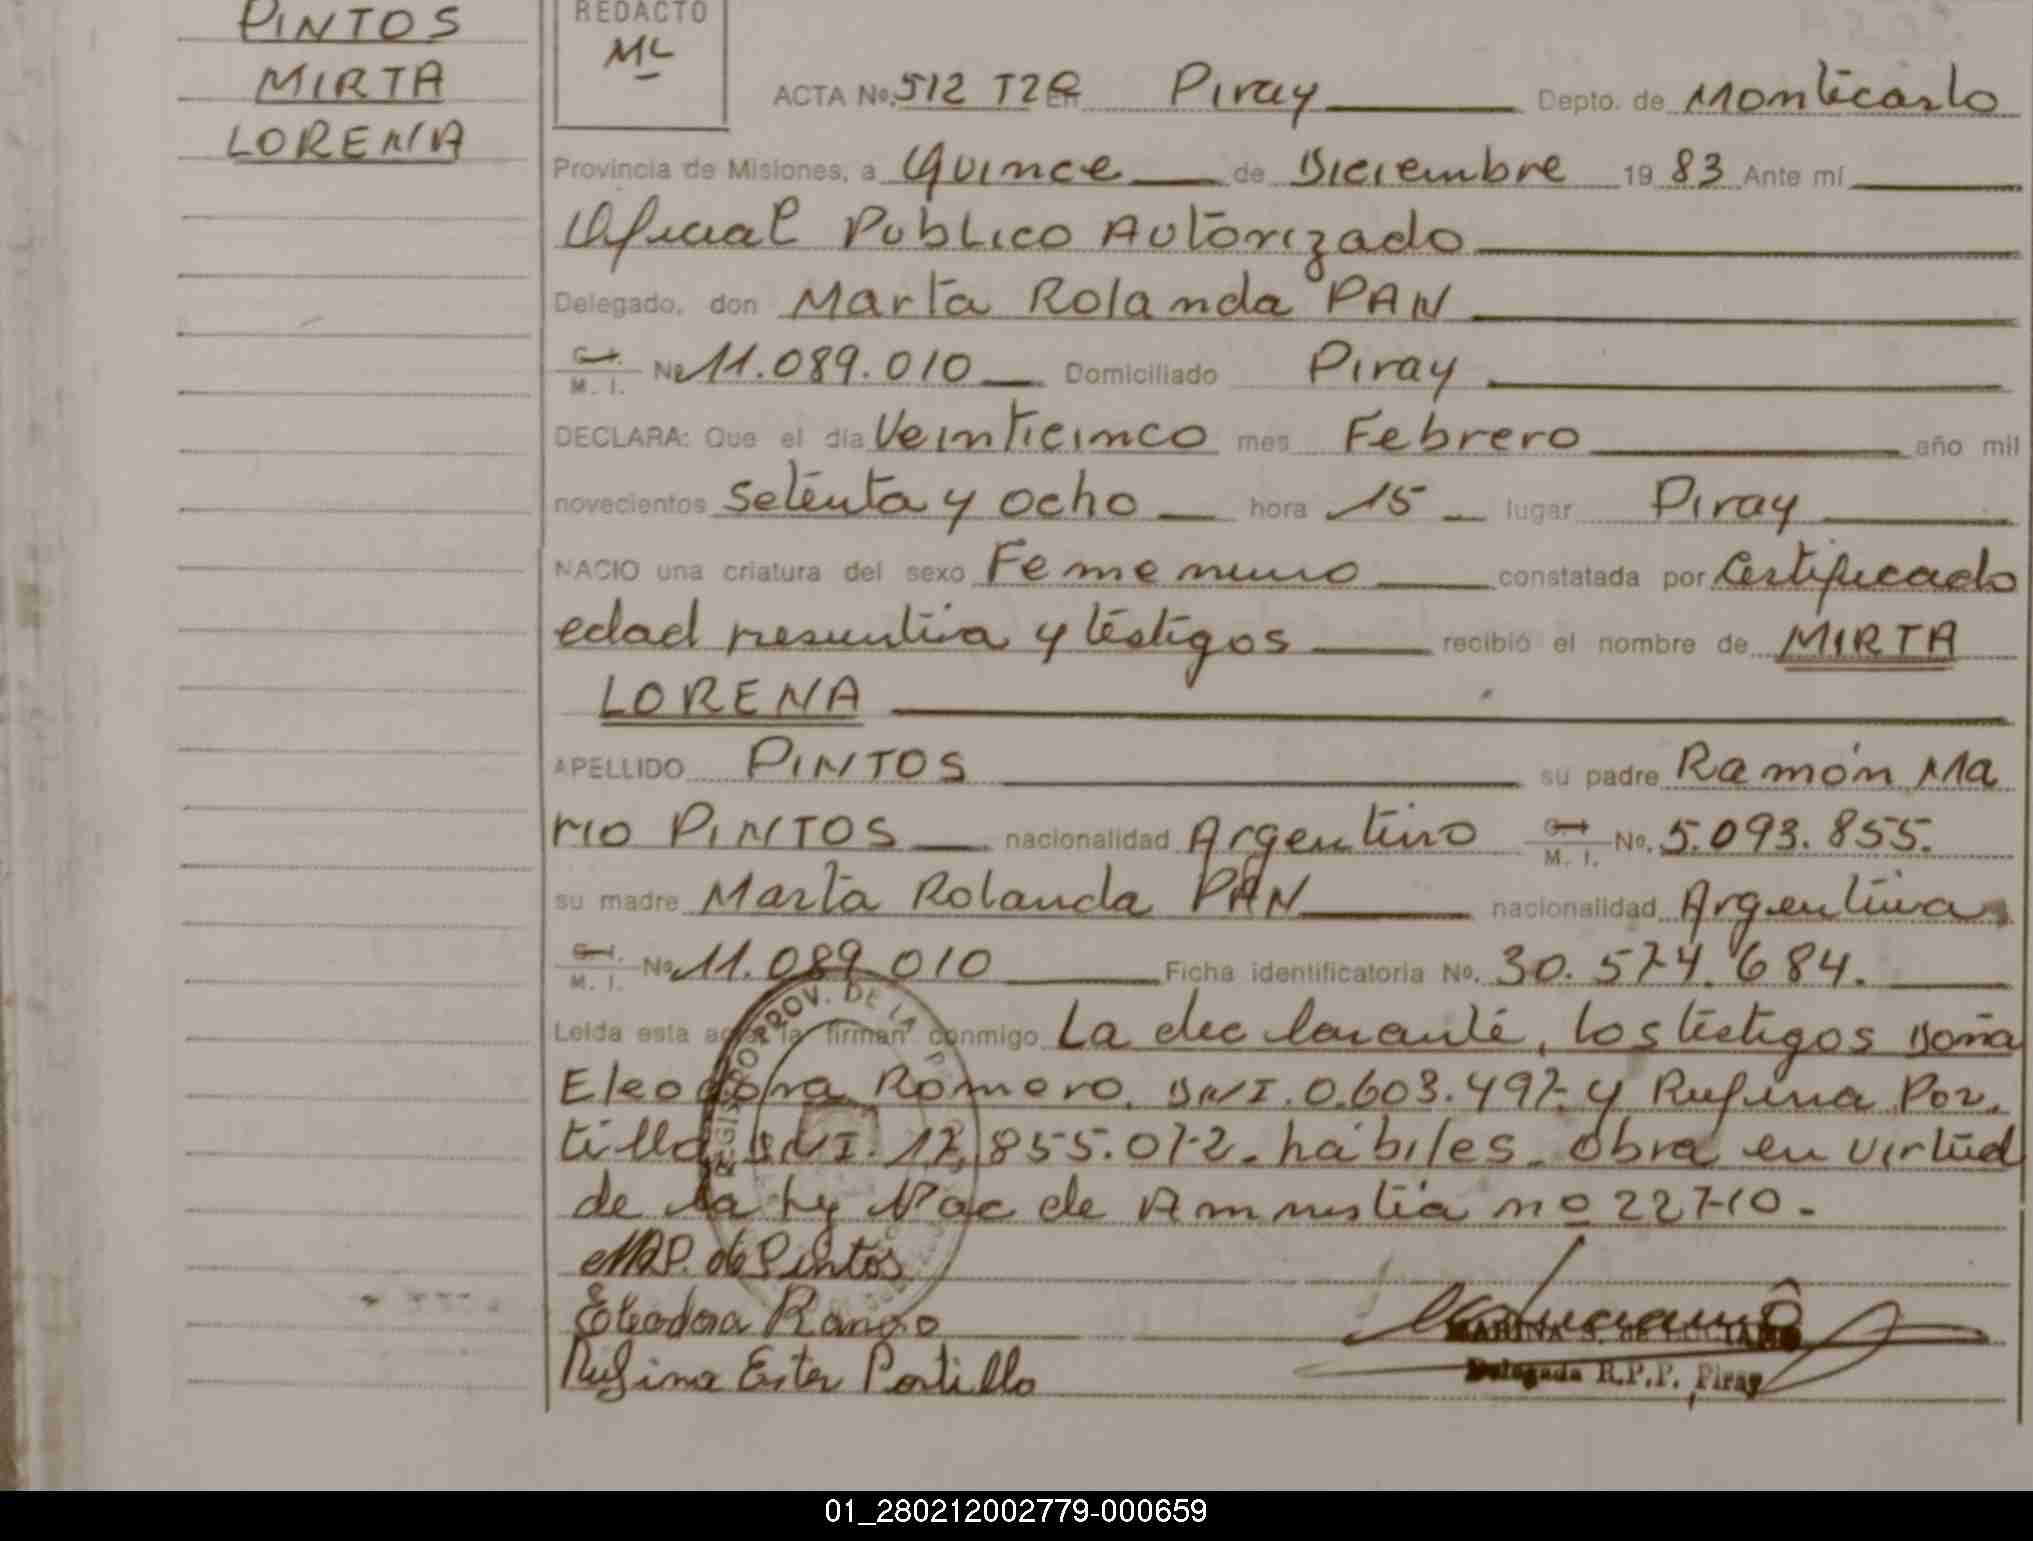 PINTOS
MIRTA
LORENA
REDACTO
ML
ACTA No. 512 T2R En Piray Depto. de Montecarlo
Provincia de Misiones, a Quince de Diciembre 19 83 Ante mí
Oficial Público Autorizado
Delegado, don Marta Rolanda PAN
C. I.
M. I. No 11.089.010 Domiciliado Piray
DECLARA: Que el día Veinticinco mes Febrero año mil
novecientos setenta y ocho hora 15 lugar Piray
NACIO una criatura del sexo Femenino constatada por Certificado
edad presuntiva y testigos recibió el nombre de MIRTA
LORENA
APELLIDO PINTOS su padre Ramón Ma
rio PINTOS nacionalidad Argentino C. I. M. I. No. 5.093.855.
su madre Marta Rolanda PAN nacionalidad Argentina
C. I.
M. I. No 11.089.010 Ficha identificatoria No. 30.574.684.
Leída esta acta la firman conmigo La declarante, los testigos Doña
Eleodora Romero. DNI. 0.603.497 y Rufina Por
tillo DNI. 17.855.072. hábiles. obra en virtud
de la Ley Nac de Amnistía nº 22710.
MRP. de Pintos
Eleodora Romero
Rufina Ester Portillo
MARINA S. DE LUCIANO
Delegada R.P.P. Piray
REGISTRO PROV. DE LA
01_280212002779-000659